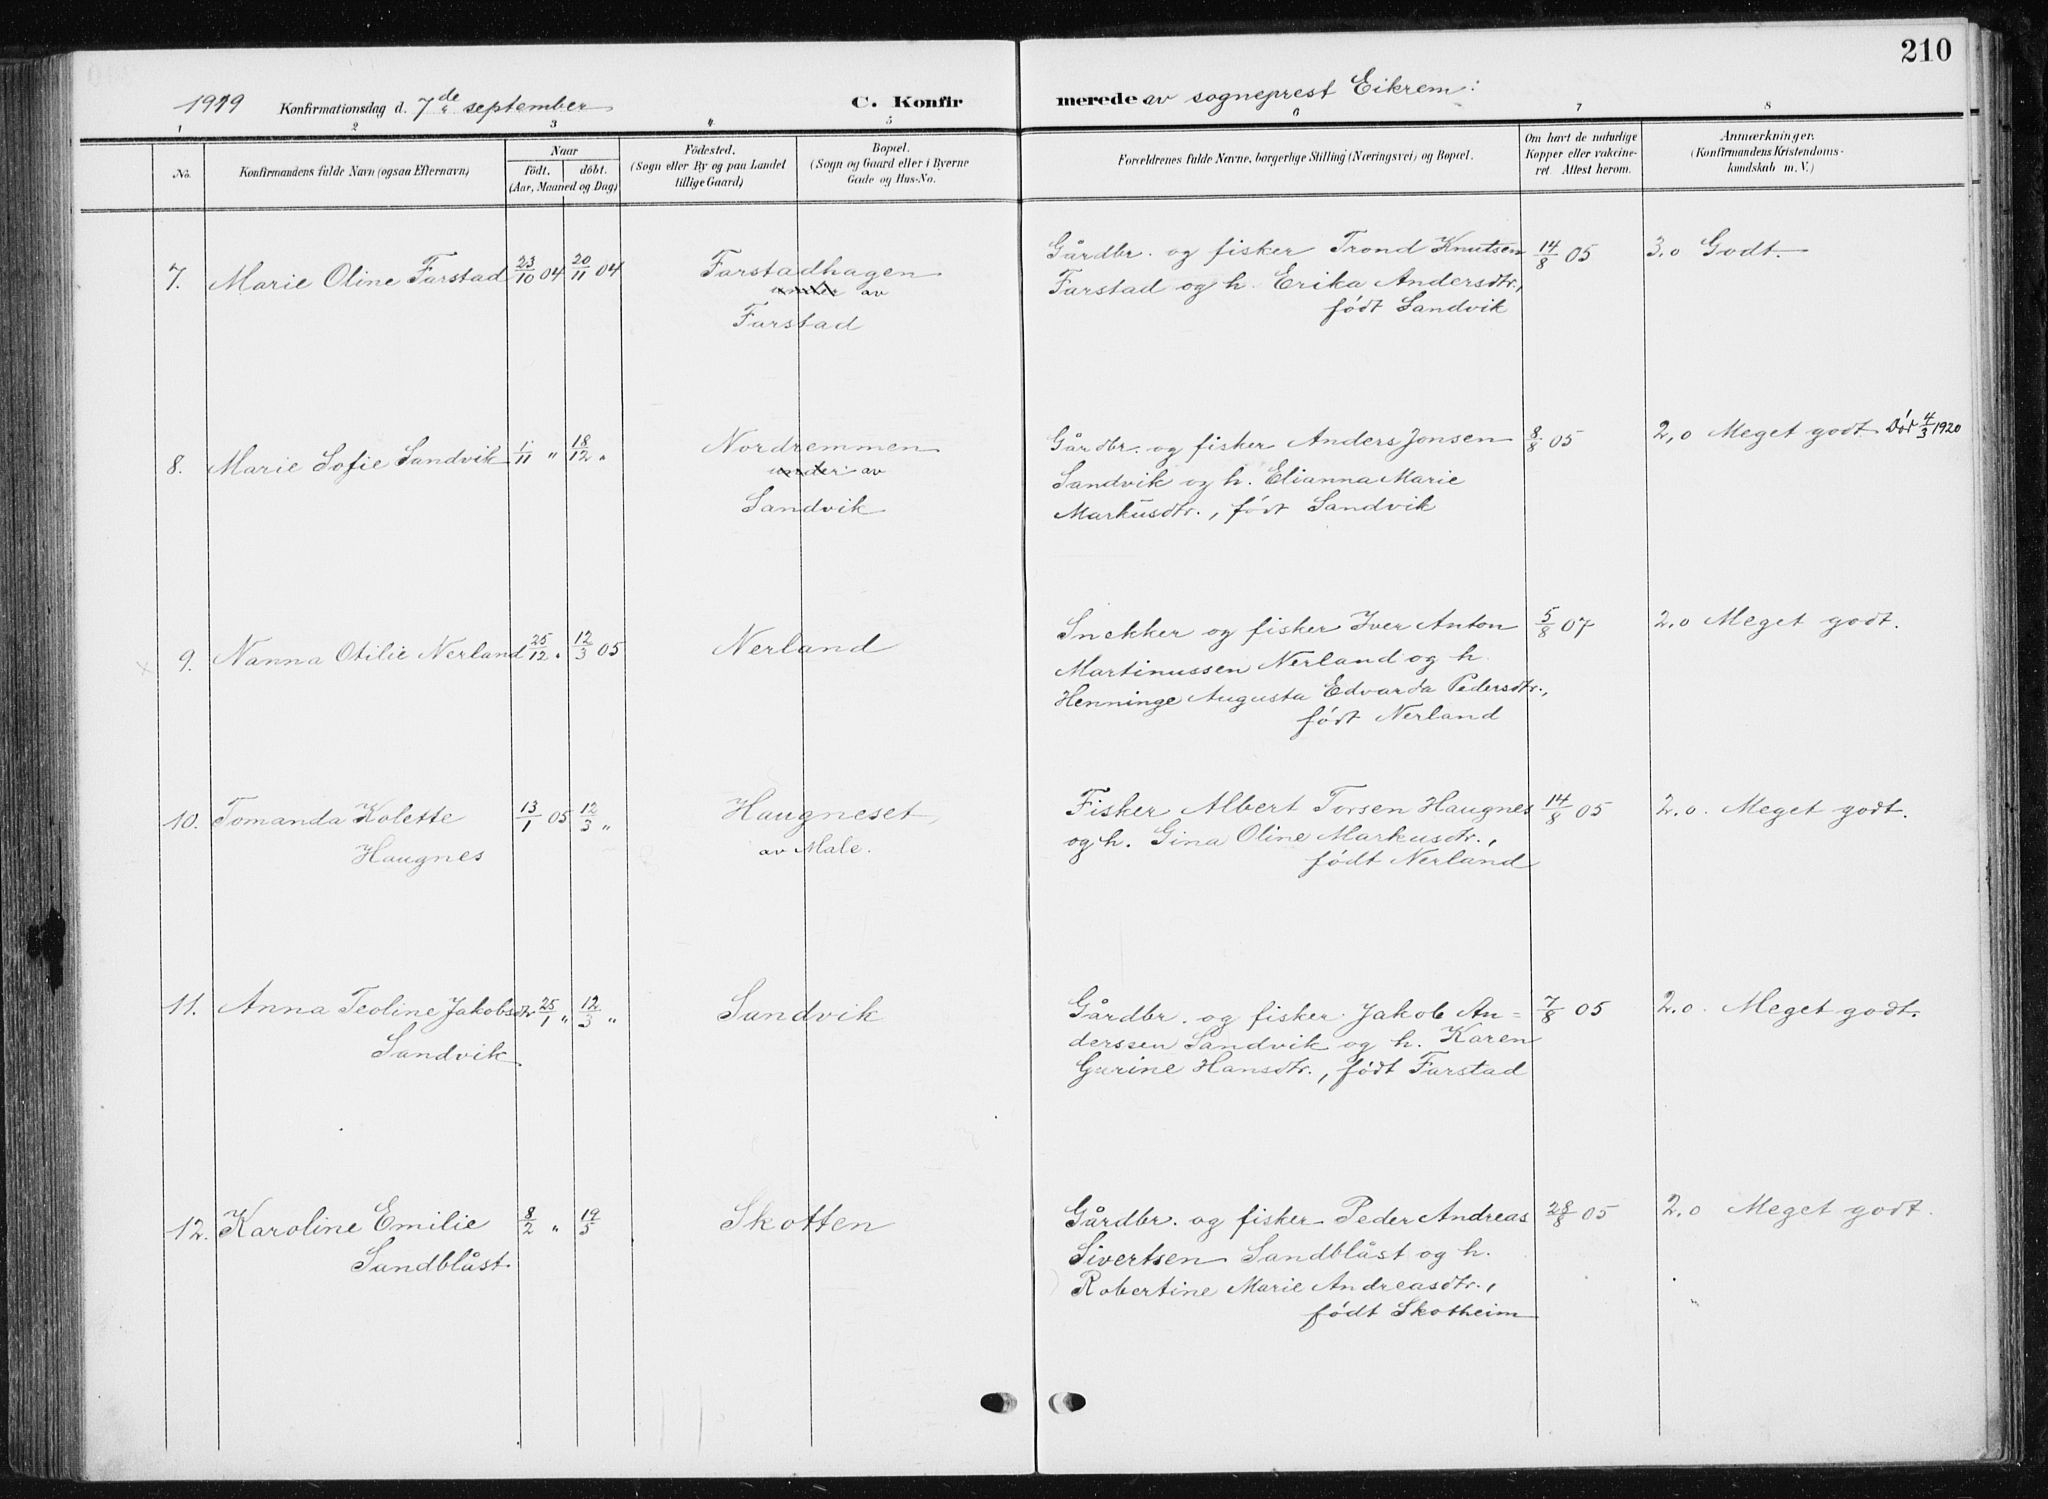 210
1919 Konfirmationsdag d. 7de september C. Konfirmerede av sogneprest Eikrem:
1 2 3 4 5 6 7 8
No. Konfirmandens fulde Navn (ogsaa Efternavn) Naar født. døbt. (Aar, Maaned og Dag) Fødested. (Sogn eller By og paa Landet tillige Gaard) Bopæl. (Sogn og Gaard eller i Byerne Gade og Hus-No. Forældrenes fulde Navne, borgerlige Stilling (Næringsvei) og Bopæl. Om havt de naturlige Kopper eller vakcineret. Attest herom. Anmærkninger. (Konfirmandens Kristendomskundskab m. V.)
7. Marie Oline Farstad 23/10 04 20/11 04 Farstadhagen Gårdbr. og fisker Trond Knutsen 14/8 05 3,0 Godt.
under av Farstad og h. Erika Andersdtr.,
Farstad født Sandvik
8. Marie Sofie Sandvik 1/11 " 18/12 " Nordremmen Gårdbr. og fisker Anders Jonsen 8/8 05 2,0 Meget godt Død 4/3 1920
under av Sandvik og h. Elianna Marie
Sandvik Markusdtr., født Sandvik
9. Nanna Otilie Nerland 25/12 " 12/3 05 Nerland Snekker og fisker Iver Anton 5/8 07 2,0 Meget godt.
Martinussen Nerland og h.
Henninge Augusta Edvarda Pedersdtr.,
født Nerland
10. Tomanda Kolette 13/1 05 12/3 " Haugneset, Fisker Albert Torsen Haugnes 14/8 05 2.0. Meget godt.
Haugnes av Male. og h. Gina Oline Markusdtr.,
født Nerland
11. Anna Teoline Jakobsdtr 25/1 " 12/3 " Sandvik Gårdbr. og fisker Jakob An= 7/8 05 2.0. Meget godt.
Sandvik derssen Sandvik og h. Karen
Gurine Hansdtr., født Farstad
12. Karoline Emilie 8/2 " 19/5 Skotten Gårdbr. og fisker Peder Andreas 28/8 05 2.0 Meget godt.
Sandblåst Sivertsen Sandblåst og h.
Robertine Marie Andreasdtr.,
født Skotheim